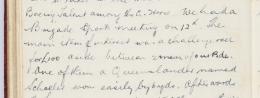 Boxing talent among the C. Two. We had a
Brigade Sports meeting on 12th. The
main item of interest was a challenge race
for £100 aside between 2 men of our Bde.
One of them a Queenslander named
Scheeler won easily by 6 yds. Afterwards